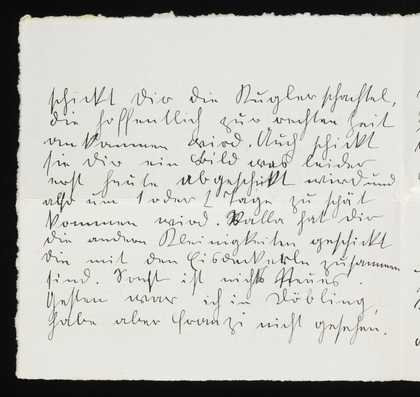 schickt Dir die Kuglerschachtel,
die hoffentlich zur rechten Zeit
ankommen wird. Auch schickt
sie Dir ein Bild was leider
erst heute abgeschickt wird und
also um 1 oder 2 Tage zu spät
kommen wird. Walla hat Dir
die andern Kleinigkeiten geschickt
die mit den Eisdeckerln zusammen
sind. Sonst ist nichts Neues.
Gestern war ich in Döbling,
habe aber Franzi nicht gesehen.